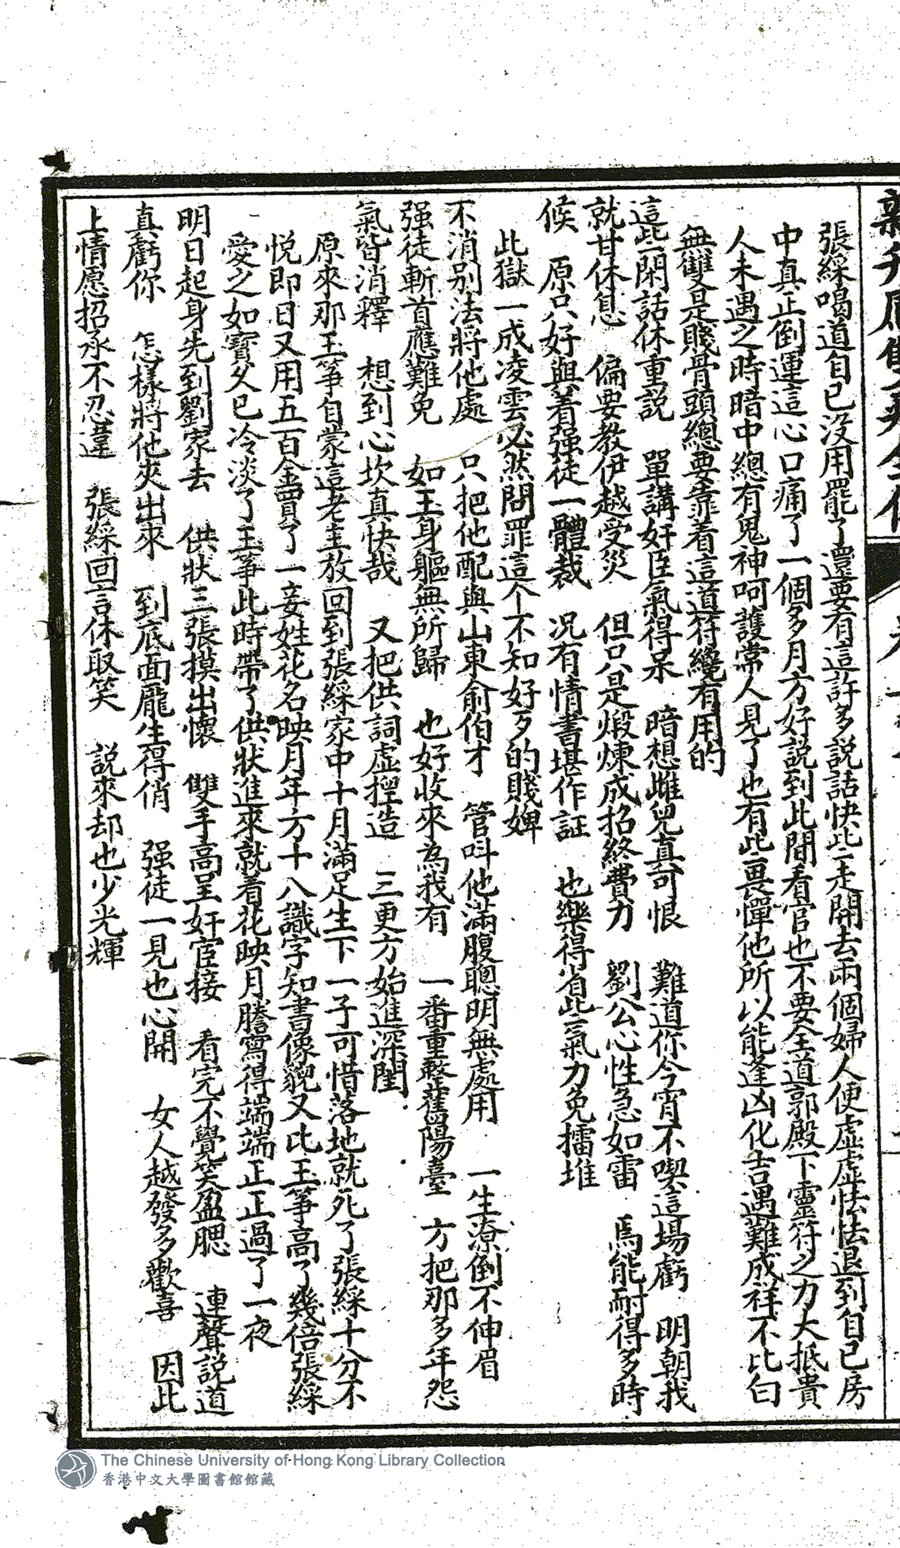 張綵喝道自己沒用罷了還要有這許多説話快些走開去兩個婦人便虛虛怯怯退到自己房
中真正倒運這心口痛了一個多月方好説到此間看官也不要全道郭殿下靈符之力大抵貴
人未遇之時暗中總有鬼神呵護常人見了也有些畏憚他所以能逢凶化吉遇難成祥不比白
無雙是賤骨頭總要靠着這道符纔有用的
這些閑話休重説 單講奸臣氣得呆 暗想雌兒真可恨 難道你今宵不喫這場虧 明朝我
就甘休息 偏要教伊越受災 但只是煅煉成招終費力 劉公心性急如雷 焉能耐得多時
候 原只好與着强徒一體裁 况有情書堪作証 也樂得省些氣力免擂堆
此獄一成凌雲必然問罪這个不知好歹的賤婢
不消别法將他處 只把他配與山東俞伯才 管呌他滿腹聰明無處用 一生潦倒不伸眉
强徒斬首應難免 如王身軀無所歸 也好收來為我有 一番重整舊陽臺 方把那多年怨
氣皆消釋 想到心坎真快哉 又把供詞虛揑造 三更方始進深閨
原來那王筝自蒙這老主放回到張綵家中十月滿足生下一子可惜落地就死了張綵十分不
悦即日又用五百金買了一妾姓花名映月年方十八識字知書像貌又比王筝高了幾倍張綵
愛之如寶父已冷淡了王筝此時帶了供狀進來就着花映月謄寫得端端正正過了一夜
明日起身先到劉家去 供狀三張摸出懷 雙手高呈奸宦接 看完不覺笑盈腮 連聲説道
真虧你 怎樣將他夾出來 到底面龎生得俏 强徒一見也心開 女人越發多歡喜 因此
上情愿招承不忍違 張綵回言休取笑 説來却也少光輝
The Chinese University of Hong Kong Library Collection
香港中文大學圖書館館藏